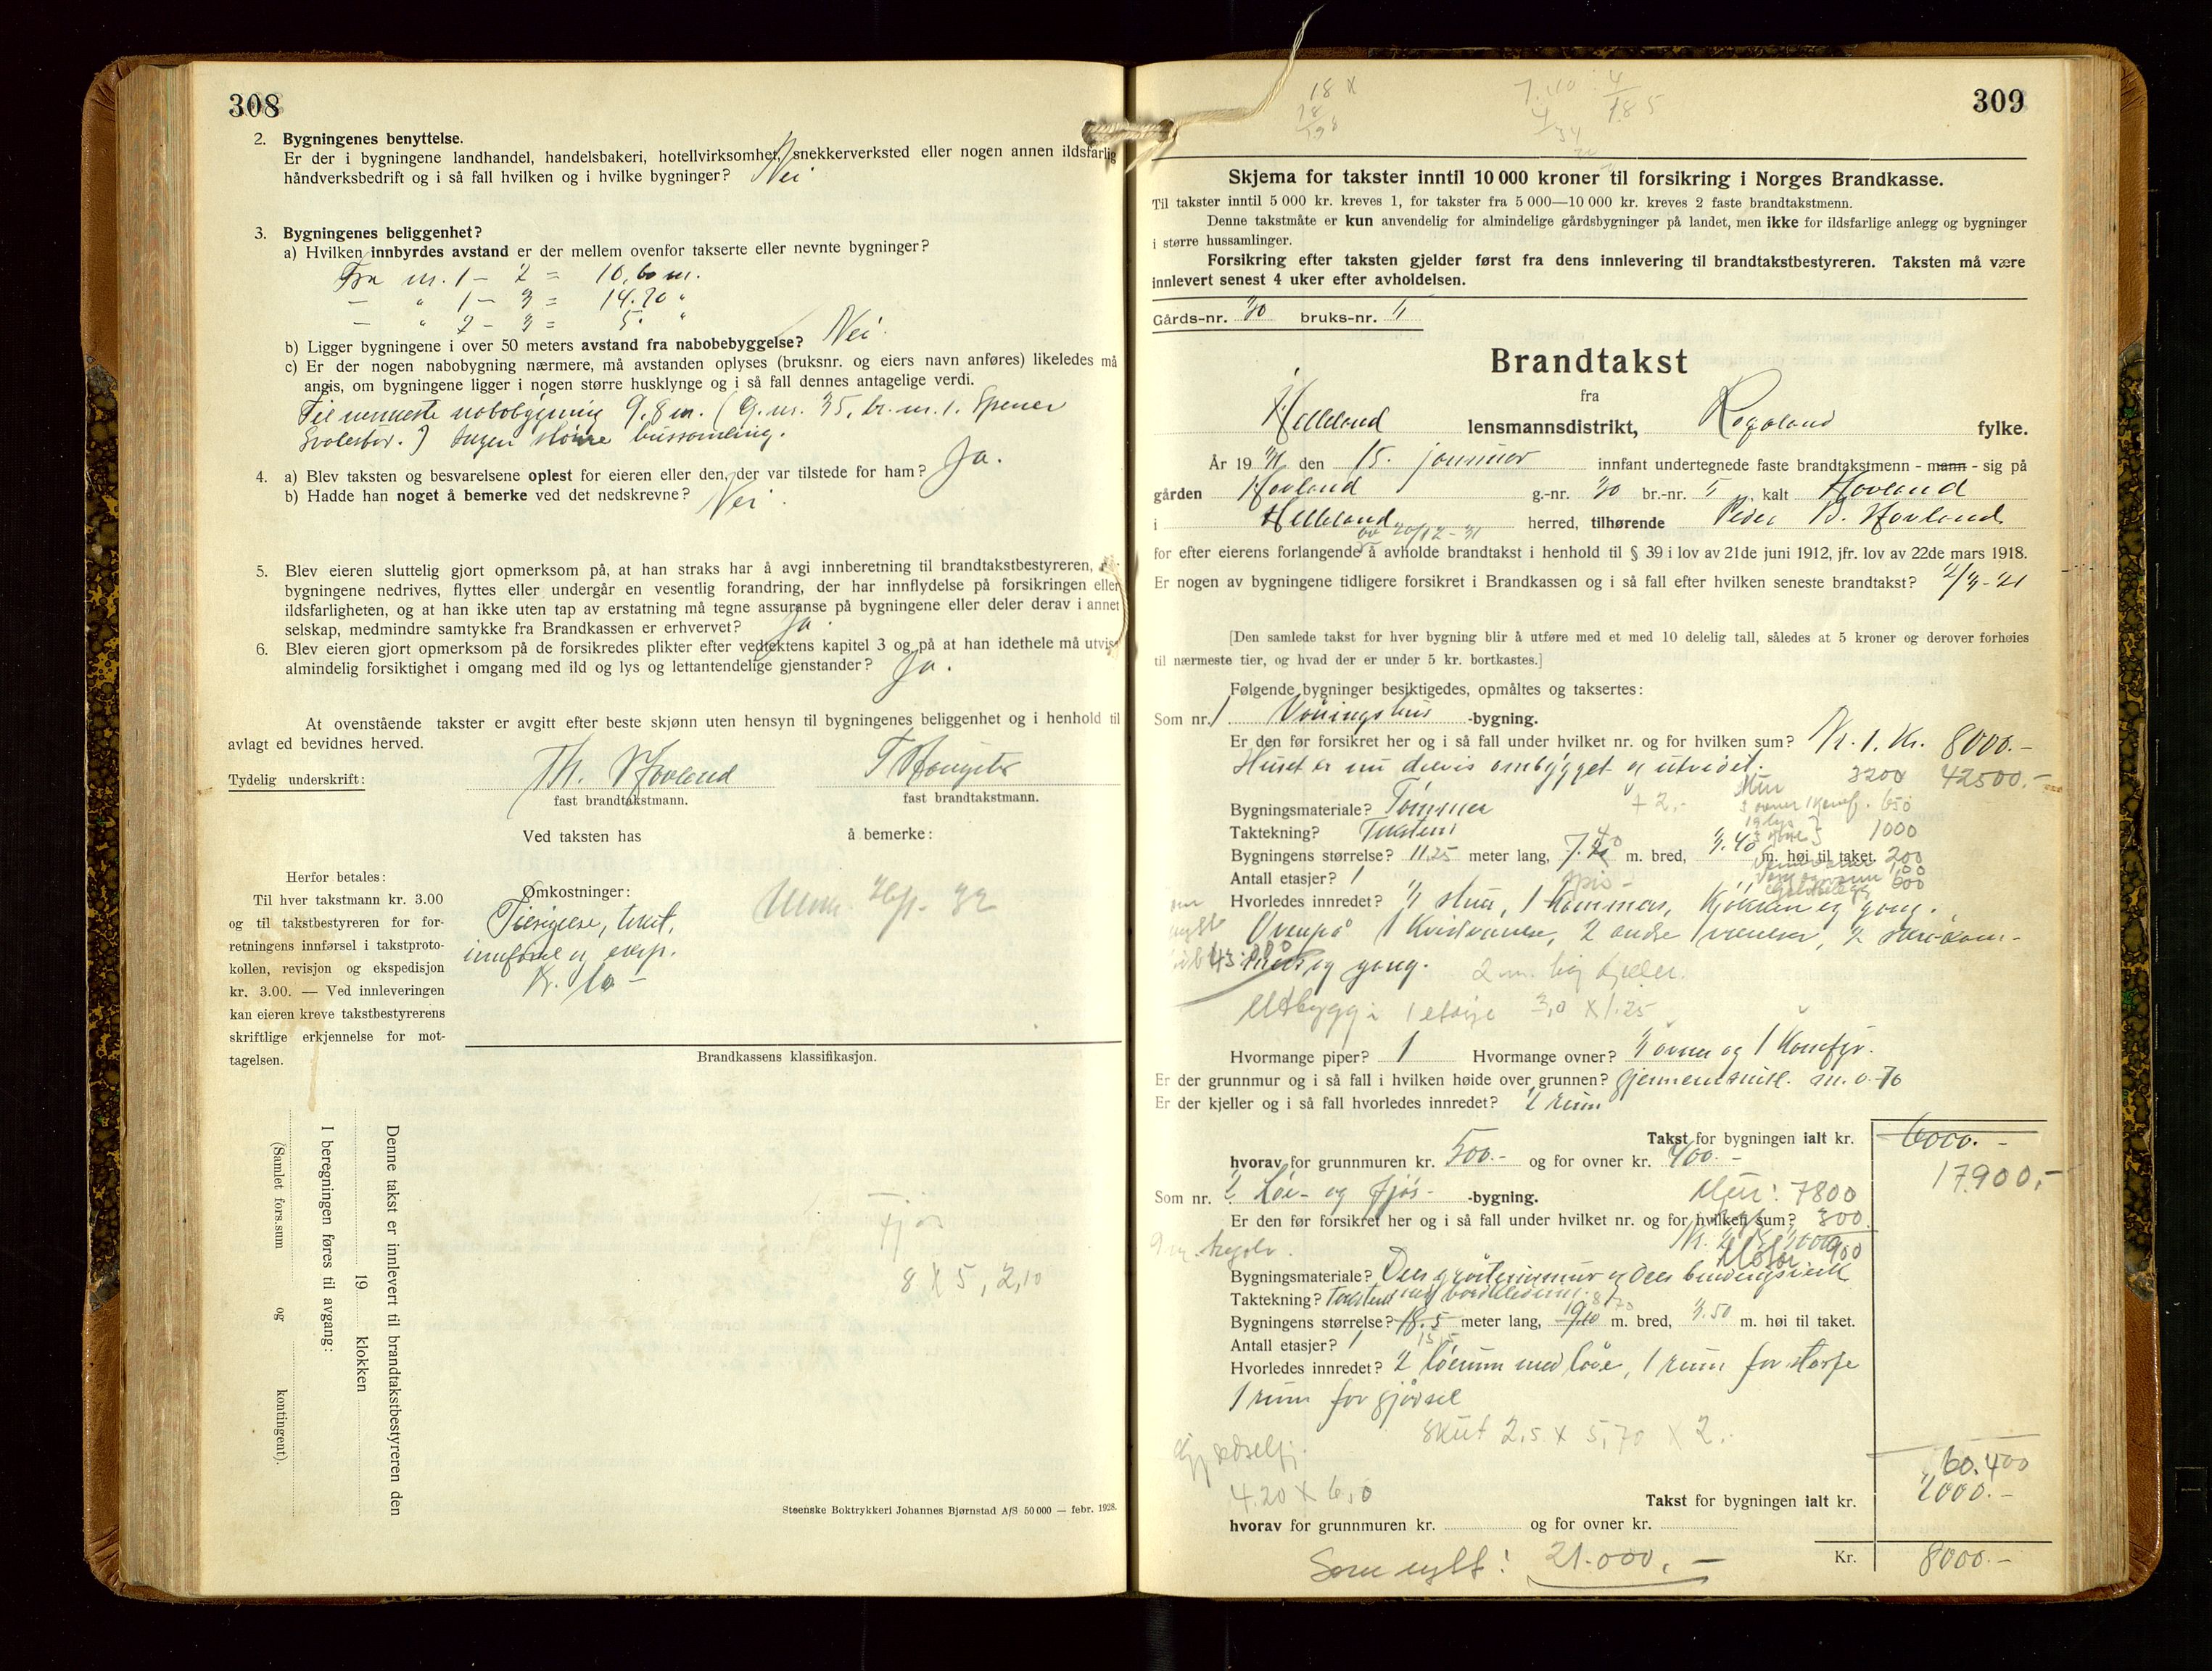 308
2. Bygningenes benyttelse.
Er der i bygningene landhandel, handelsbakeri, hotellvirksomhet, snekkerverksted eller nogen annen ildsfarlig
håndverksbedrift og i så fall hvilken og i hvilke bygninger? Nei
3. Bygningenes beliggenhet?
a) Hvilken innbyrdes avstand er der mellem ovenfor takserte eller nevnte bygninger?
Fra nr. 1 - 2 = 10,60 m.
— " 1 - 3 = 14.70 "
— " 2 - 3 = 5. "
b) Ligger bygningene i over 50 meters avstand fra nabobebyggelse? Nei
c) Er der nogen nabobygning nærmere, må avstanden oplyses (bruksnr. og eiers navn anføres) likeledes må
angis, om bygningene ligger i nogen større husklynge og i så fall dennes antagelige verdi.
Til nermeste nabobygning 9,8 m. (G.nr. 35, br.nr. 1.
Ingen større hussamling.
4. a) Blev taksten og besvarelsene oplest for eieren eller den, der var tilstede for ham? Ja.
b) Hadde han noget å bemerke ved det nedskrevne? Nei.
5. Blev eieren sluttelig gjort opmerksom på, at han straks har å avgi innberetning til brandtakstbestyreren,
bygningene nedrives, flyttes eller undergår en vesentlig forandring, der har innflydelse på forsikringen eller
ildsfarligheten, og at han ikke uten tap av erstatning må tegne assuranse på bygningene eller deler derav i annet
selskap, medmindre samtykke fra Brandkassen er erhvervet? Ja
6. Blev eieren gjort opmerksom på de forsikredes plikter efter vedtektens kapitel 3 og på at han idethele må utvise
almindelig forsiktighet i omgang med ild og lys og lettantendelige gjenstander? Ja.
At ovenstående takster er avgitt efter beste skjønn uten hensyn til bygningenes beliggenhet og i henhold til
avlagt ed bevidnes herved.
Tydelig underskrift: Th. Hovland
fast brandtakstmann. fast brandtakstmann.
Ved taksten has å bemerke:
Herfor betales:
Til hver takstmann kr. 3.00
og til takstbestyreren for for-
retningens innførsel i takstproto-
kollen, revisjon og ekspedisjon
kr. 3.00. — Ved innleveringen
kan eieren kreve takstbestyrerens
skriftlige erkjennelse for mot-
tagelsen.
Omkostninger:
Tilsigelse, takst,
innførsel og eksp.
Kr. 10 -
Brandkassens klassifikasjon.
Fjøs
8 X 5, 2,10
Denne takst er innlevert til brandtakstbestyreren den
19 klokken
I beregningen føres til avgang:
(Samlet fors.sum og kontingent).
Steenske Boktrykkeri Johannes Bjørnstad A/S 50 000 — febr. 1928.
309
18 x
Skjema for takster inntil 10 000 kroner til forsikring i Norges Brandkasse.
Til takster inntil 5 000 kr. kreves 1, for takster fra 5 000—10 000 kr. kreves 2 faste brandtakstmenn.
Denne takstmåte er kun anvendelig for almindelige gårdsbygninger på landet, men ikke for ildsfarlige anlegg og bygninger
i større hussamlinger.
Forsikring efter taksten gjelder først fra dens innlevering til brandtakstbestyreren. Taksten må være
innlevert senest 4 uker efter avholdelsen.
Gårds-nr. 30 bruks-nr.
Brandtakst
fra
Helleland lensmannsdistrikt, Rogaland fylke.
År 19 31 den 15. januar innfant undertegnede faste brandtakstmenn - mann - sig på
gården Hovland g.-nr. 30 br.-nr. kalt Hovland
i Helleland herred, tilhørende Peder B. Hovland
av 20/12 - 31
for efter eierens forlangende å avholde brandtakst i henhold til § 39 i lov av 21de juni 1912, jfr. lov av 22de mars 1918.
Er nogen av bygningene tidligere forsikret i Brandkassen og i så fall efter hvilken seneste brandtakst? 2/3 - 21
[Den samlede takst for hver bygning blir å utføre med et med 10 delelig tall, således at 5 kroner og derover forhøies
til nærmeste tier, og hvad der er under 5 kr. bortkastes.]
Følgende bygninger besiktigedes, opmåltes og taksertes:
Som nr. 1 Våningshus -bygning.
Er den før forsikret her og i så fall under hvilket nr. og for hvilken sum? Nr. 1. Kr. 8000.-
Huset er nu delvis ombygget og utvidet.
3200 42500.-
Bygningsmateriale? Tømmer + 2.- 650
Taktekning? Taksten 1000
Bygningens størrelse? 11,25 meter lang, m. bred, 3.40 m. høi til taket. 200
Antall etasjer? 1 600
Hvorledes innredet? 3 stuer, 1 kammers, kjøkken og gang.
Ovenpå 1 kvistværelse, 2 andre værelser, 2
og gang. 2 m. høy kjeller.
Utbygg i 1 etasje 3,0 X 1.25
Hvormange piper? 1 Hvormange ovner? 3 ovner og 1 komfyr.
Er der grunnmur og i så fall i hvilken høide over grunnen? gjennemsnitl. m. 0.70
Er der kjeller og i så fall hvorledes innredet? 2 rum
Takst for bygningen ialt kr. 6000.-
hvorav for grunnmuren kr. 500.- og for ovner kr. 400.-
17900,-
Som nr. 2 Løe- og fjøs- -bygning. 7800
Er den før forsikret her og i så fall under hvilket nr. og for hvilken sum? 300
Nr. 2
Bygningsmateriale? Dels gråstensmur og dels bindingsverk
Taktekning? Taksten
Bygningens størrelse? 18.5 meter lang, m. bred, 3.50 m. høi til taket.
Antall etasjer? 1
Hvorledes innredet? 2 løerum med låve, 1 rum for storfe
1 rum for gjødsel
Skut 2,5 x 5,70 x 2.
4.20 X 6,0
60.400
Takst for bygningen ialt kr. 2000.-
hvorav for grunnmuren kr. og for ovner kr.
Kr. 8000.-
Som nytt: 21.000,-